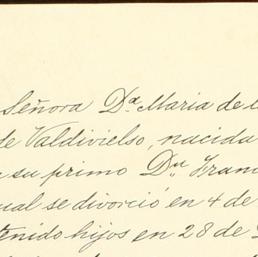 Señora Dª Maria de l
de Valdivielso, nacida
su primo Dn Fran
ual se divorció en 4 de
tenido hijos en 28 de